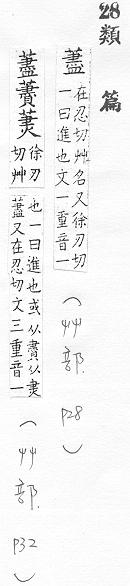 28類篇
藎 在忍切艸名又徐刃切
一曰進也文一重音一
(艸部 P28)
藎藚䒞 徐刃
切艸
也一曰進也或从賮从㶳
藎又在忍切文三重音一
(艸部 P32)